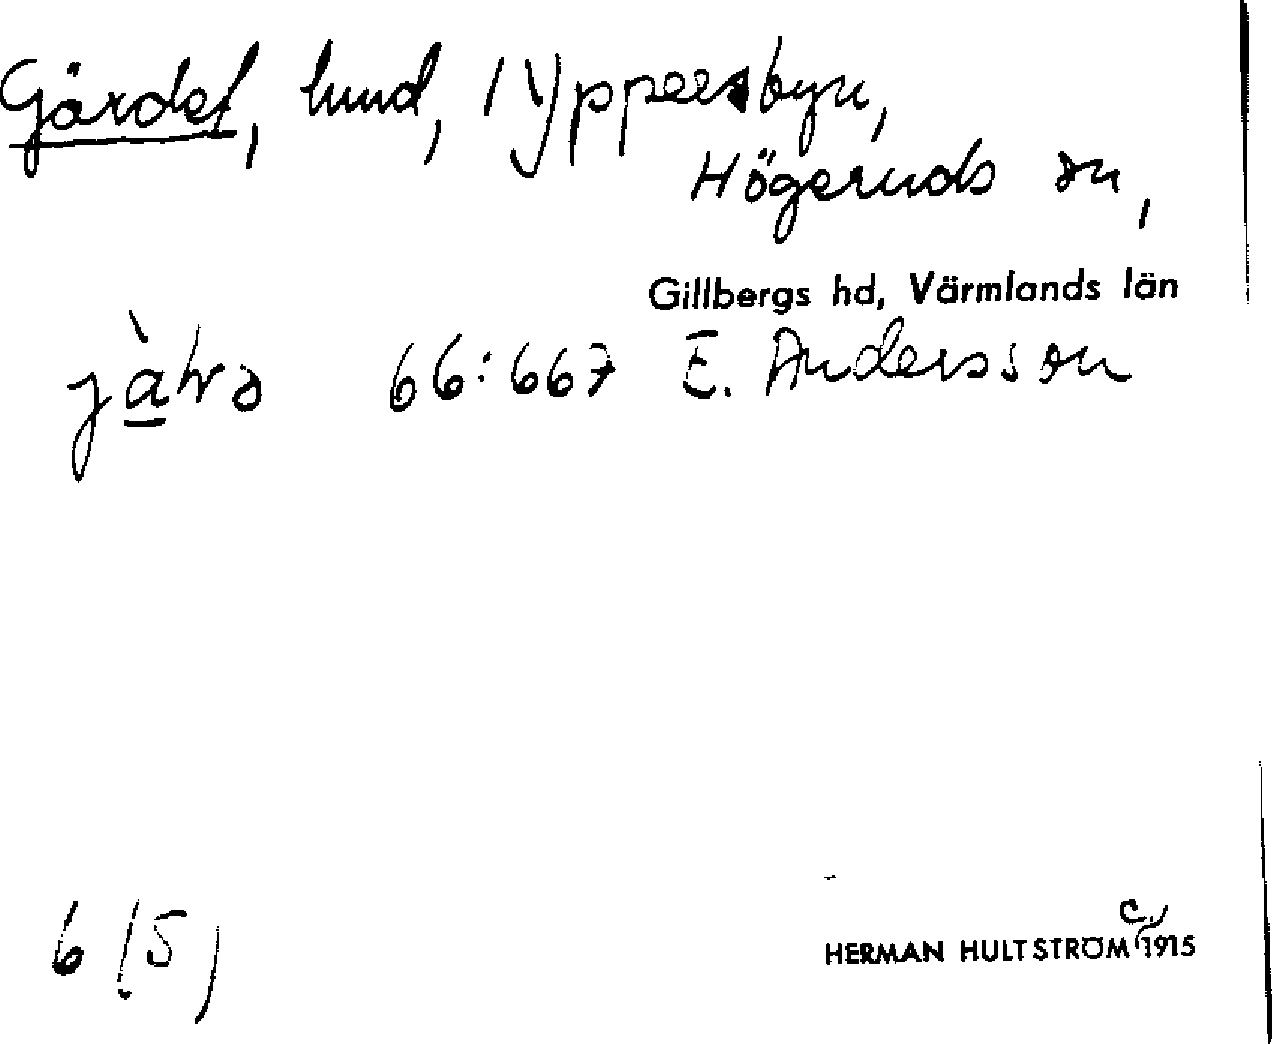 Gärdet, lund, i Yppersbyn,
Högeruds sn,
Gillbergs hd, Värmlands län
66:667 E. Andersson
6 (5)
HERMAN HULTSTRÖM c. 1915